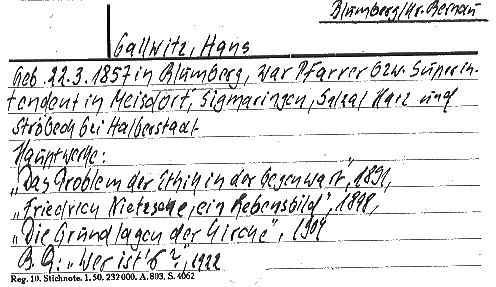 Blumberg/Kr. Bernau
Gallwitz, Hans
Geb. 22.3.1857 in Blumberg, war Pfarrer bzw. Superin-
tendent in Meisdorf, Sigmaringen, Harz und
Ströbeck bei Halberstadt
Hauptwerke:
„Das Problem der Ethik in der Gegenwart", 1891,
„Friedrich Nietzsche, ein Lebensbild", 1898,
„Die Grundlagen der Kirche", 1904
B.Q.: „Wer ist's?", 1922
Reg. 10. Stichnote. 1. 50. 232000. A. 803. S. 4062